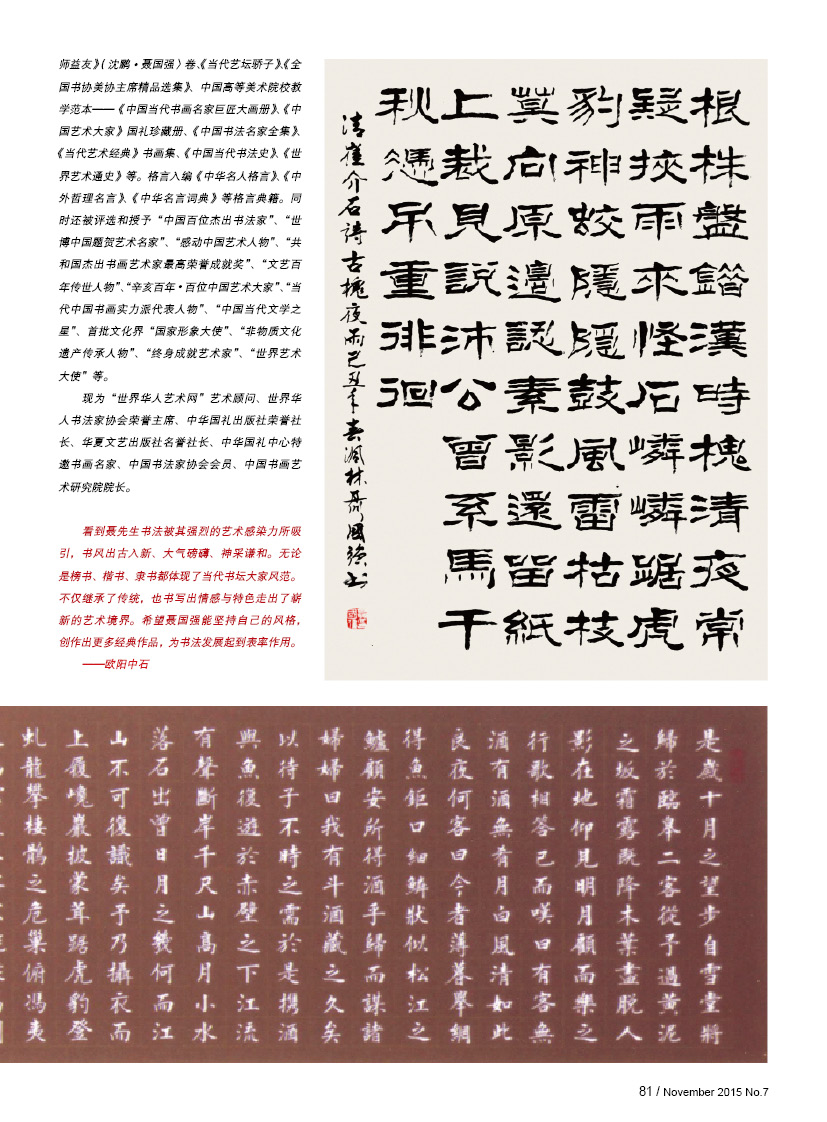 师益友》（沈鹏·聂国强）卷、《当代艺坛骄子》、《全
国书协美协主席精品选集》、中国高等美术院校教
学范本——《中国当代书画名家巨匠大画册》、《中
国艺术大家》国礼珍藏册、《中国书法名家全集》、
《当代艺术经典》书画集、《中国当代书法史》、《世
界艺术通史》等。格言入编《中华名人格言》、《中
外哲理名言》、《中华名言词典》等格言典籍。同
时还被评选和授予“中国百位杰出书法家”、“世
博中国题贺艺术名家”、“感动中国艺术人物”、“共
和国杰出书画艺术家最高荣誉成就奖”、“文艺百
年传世人物”、“辛亥百年·百位中国艺术大家”、“当
代中国书画实力派代表人物”、“中国当代文学之
星”、首批文化界“国家形象大使”、“非物质文化
遗产传承人物”、“终身成就艺术家”、“世界艺术
大使”等。
现为“世界华人艺术网”艺术顾问、世界华
人书法家协会荣誉主席、中华国礼出版社荣誉社
长、华夏文艺出版社名誉社长、中华国礼中心特
邀书画名家、中国书法家协会会员、中国书画艺
术研究院院长。
看到聂先生书法被其强烈的艺术感染力所吸
引，书风出古入新、大气磅礴、神采谦和。无论
是榜书、楷书、隶书都体现了当代书坛大家风范。
不仅继承了传统，也书写出情感与特色走出了崭
新的艺术境界。希望聂国强能坚持自己的风格，
创作出更多经典作品，为书法发展起到表率作用。
——欧阳中石
根株盤錯漢時槐清夜常
疑挾雨來怪石嶙嶙踞虎
豹神蛟隱隱鼓風雷枯枝
莫向原邊認素影還留紙
上裁見說沛公曾系馬千
秋憑吊重徘徊
清崔介石詩古槐夜雨己丑年春渢林聶國強書
是歲十月之望步自雪堂將
歸於臨皋二客從予過黃泥
之坂霜露既降木葉盡脫人
影在地仰見明月顧而樂之
行歌相答已而嘆曰有客無
酒有酒無肴月白風清如此
良夜何客曰今者薄暮舉網
得魚鉅口細鱗狀似松江之
鱸顧安所得酒乎歸而謀諸
婦婦曰我有斗酒藏之久矣
以待子不時之需於是攜酒
與魚復遊於赤壁之下江流
有聲斷岸千尺山高月小水
落石出曾日月之幾何而江
山不可復識矣予乃攝衣而
上履巉巖披蒙茸踞虎豹登
虬龍攀棲鶻之危巢俯馮夷
81 / November 2015 No.7